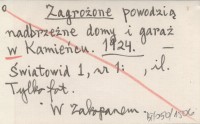 Zagrożone powodzią
nadbrzeżne domy i garaż
w Kamieńcu. 1924. —
Światowid 1, nr 1: , il.
Tylko fot.
W Zakopanem.